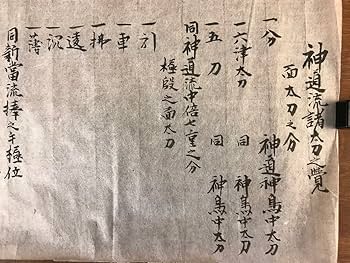 神道流諸太刀之覺
面太刀之分
一分 神道神鳥中太刀
一六津太刀 同 神鳥中太刀
一五刀 同 神鳥中太刀
同神道流中倍七重之分
極段之面太刀
一引
一車
一拂
一遠
一沉
一薄
同新當流捧之手極位